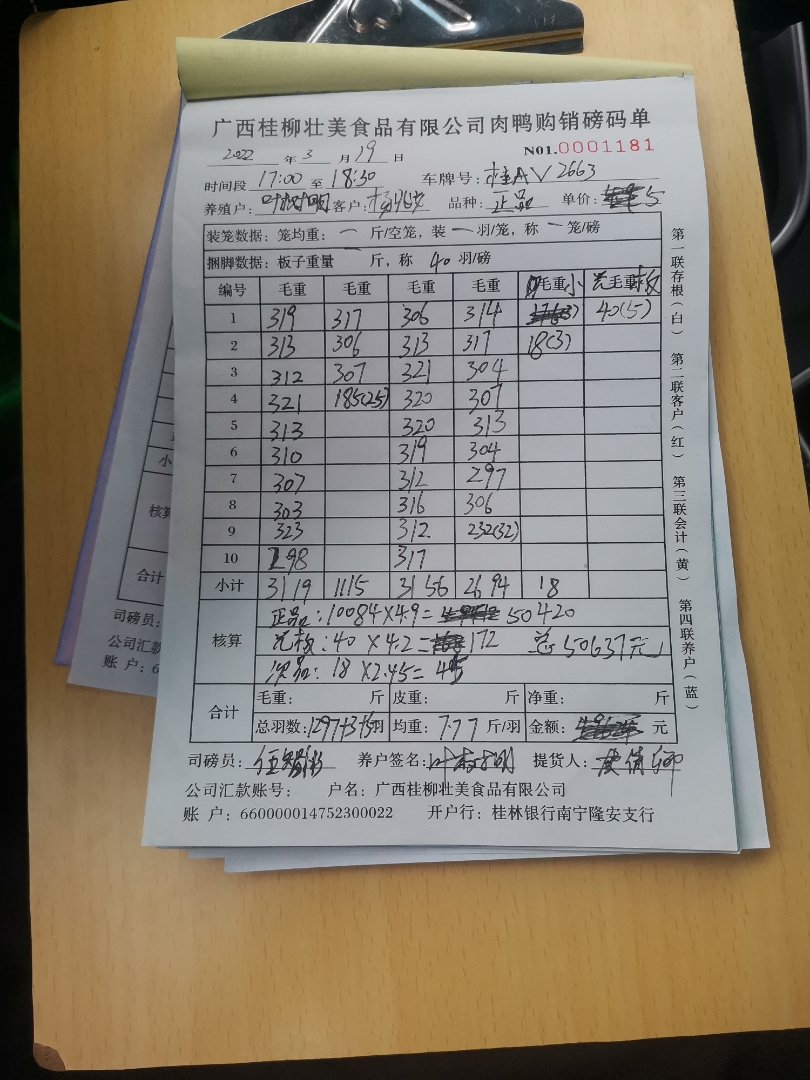 广西桂柳壮美食品有限公司肉鸭购销磅码单
2022 年 3 月 19 日 N01.0001181
时间段 17:00 至 18:30 车牌号: 桂AV2663
养殖户: 叶树明 客户: 品种: 正品 单价: 5
装笼数据: 笼均重: 一 斤/空笼, 装 一 羽/笼, 称 一 笼/磅
捆脚数据: 板子重量 一 斤, 称 40 羽/磅
编号 毛重 毛重 毛重 毛重 毛重小 毛重
1 319 317 306 314 40(5)
2 313 306 313 317 18(3)
3 312 307 321 304
4 321 185(25) 320 307
5 313 320 313
6 310 319 304
7 307 312 297
8 303 316 306
9 323 312 232(32)
10 298 317
小计 3119 1115 3156 2694 18
核算 正品:10084×4.9= 50420
:40×4.2= 172 总50637元
次品:18×2.45= 45
合计 毛重: 斤 皮重: 斤 净重: 斤
总羽数:1297+3+5羽 均重: 7.77 斤/羽 金额: 元
司磅员: 养户签名: 叶树明 提货人:
公司汇款账号: 户名: 广西桂柳壮美食品有限公司
账 户: 660000014752300022 开户行: 桂林银行南宁隆安支行
第一联存根(白) 第二联客户(红) 第三联会计(黄) 第四联养户(蓝)
小
核算
合计
司磅员:
公司汇款
账 户: 6